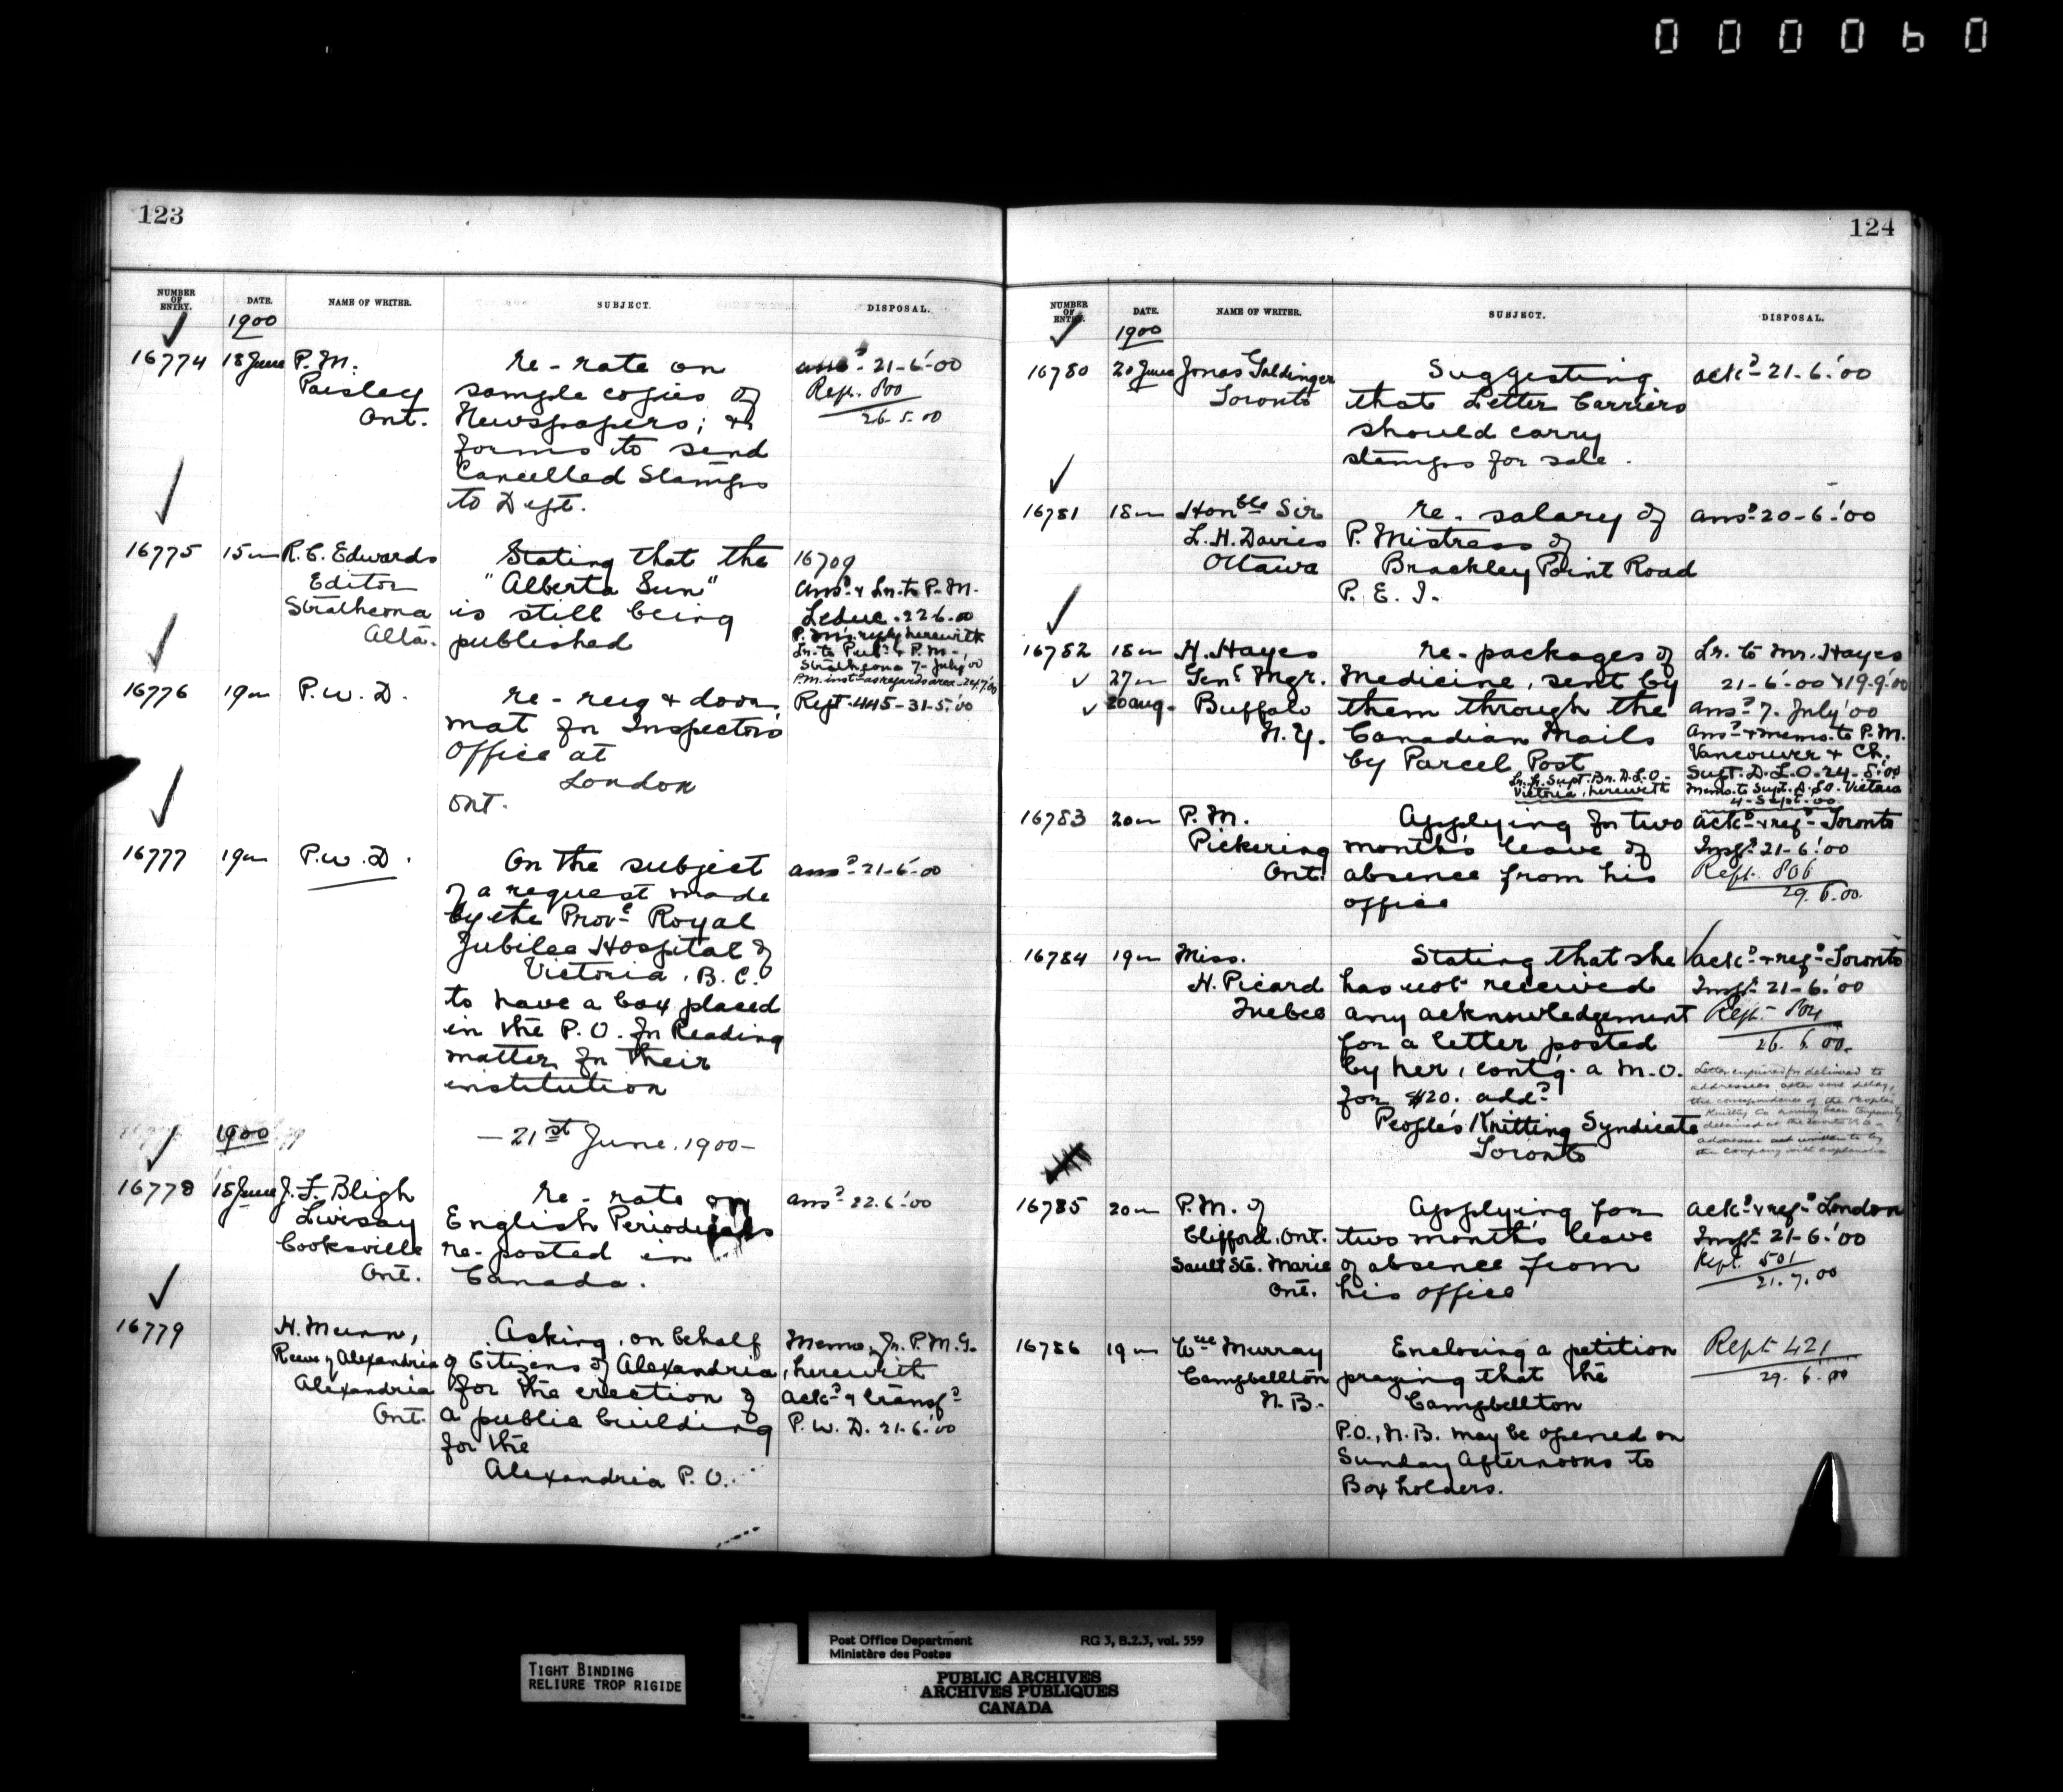 000060
123
NUMBER OF ENTRY.
DATE.
NAME OF WRITER.
SUBJECT.
DISPOSAL.
1900
16774 18 June P.M. re-rate on ansd 21-6-'00
Paisley sample copies of Rept. 800
Ont. Newspapers; & 26.5.00
forms to send
Cancelled Stamps
to Dept.
16775 15 " R.C. Edwards Stating that the 16709
Editor "Alberta Sun" ansd & Lr. to P.M.
Strathcona is still being Leduc. 22.6.00
Alta. published P.M's reply herewith
Lr. to Publr & P.M.,
Strathcona 7-July '00
P.M. inst as regards area - 24.7.'00
16776 19 " P.W.D. re-rug & door Rept. 445-31-5-'00
mat for Inspector's
Office at
London
Ont.
16777 19 " P.W.D. On the subject ansd 21-6-'00
of a request made
by the Provl Royal
Jubilee Hospital of
Victoria, B.C.
to have a box placed
in the P.O. for Reading
matter for their
institution
1900 —21st June, 1900—
16778 18 June J.F. Bligh re-rate on ansd 22.6.'00
Livisay English Periodicals
Cooksville re-posted in
Ont. Canada.
16779 H. Munn, Asking, on behalf Memo. fr. P.M.G.
Reeve of Alexandria of Citizens of Alexandria, herewith
Alexandria for the erection of ackd & transfd
Ont. a public building P.W.D. 21-6-'00
for the
Alexandria P.O.
124
NUMBER OF ENTRY.
DATE.
NAME OF WRITER.
SUBJECT.
DISPOSAL.
1900
16780 20 June Jonas Goldinger Suggesting ackd 21-6-'00
Toronto that Letter Carriers
should carry
stamps for sale.
16781 18 " Honble Sir re-salary of ansd 20-6-'00
L.H. Davies P. Mistress of
Ottawa Brackley Point Road
P.E.I.
16782 18 " H. Hayes re-packages of Lr. to Mr. Hayes
27 " Genl Mgr. Medicine, sent by 21-6-'00 & 19-9-'00
20 Aug. Buffalo them through the ansd 7. July '00
N.Y. Canadian Mails ansd & memo. to P.M.
by Parcel Post Vancouver & Ch.
Lr. fr. Supt. Br. D.L.O. Supt. D.L.O. 24-8-'00
Victoria, herewith Memo. to Supt. D.L.O. Victoria
4-Sept-00
16783 20 " P.M. Applying for two ackd & refd Toronto
Pickering months leave of Inspr 21-6-'00
Ont. absence from his Rept. 806
office 29.6.00
16784 19 " Miss. Stating that she ackd & refd Toronto
H. Picard has not received Inspr 21-6-'00
Quebec any acknowledgement Rept. 804
for a letter posted 26.6.00.
by her, cont'g. a M.O. Letter enquired for delivered to
for $20. addd addressees after some delay,
People's Knitting Syndicate the correspondence of the People's
Toronto Knitting Co having been temporarily
detained at the Toronto P.O.
16785 20 " P.M. of Applying for ackd & refd London
Clifford, Ont. two months leave Inspr 21-6-'00
Sault Ste. Marie of absence from Rept. 501
Ont. his office 21.7.00
16786 19 " Wm Murray Enclosing a petition Rept 421
Campbellton praying that the 29.6.00
N.B. Campbellton
P.O., N.B. may be opened on
Sunday Afternoons to
Box holders.
TIGHT BINDING
RELIURE TROP RIGIDE
Post Office Department RG 3, B.2.3, vol. 559
Ministère des Postes
PUBLIC ARCHIVES
ARCHIVES PUBLIQUES
CANADA